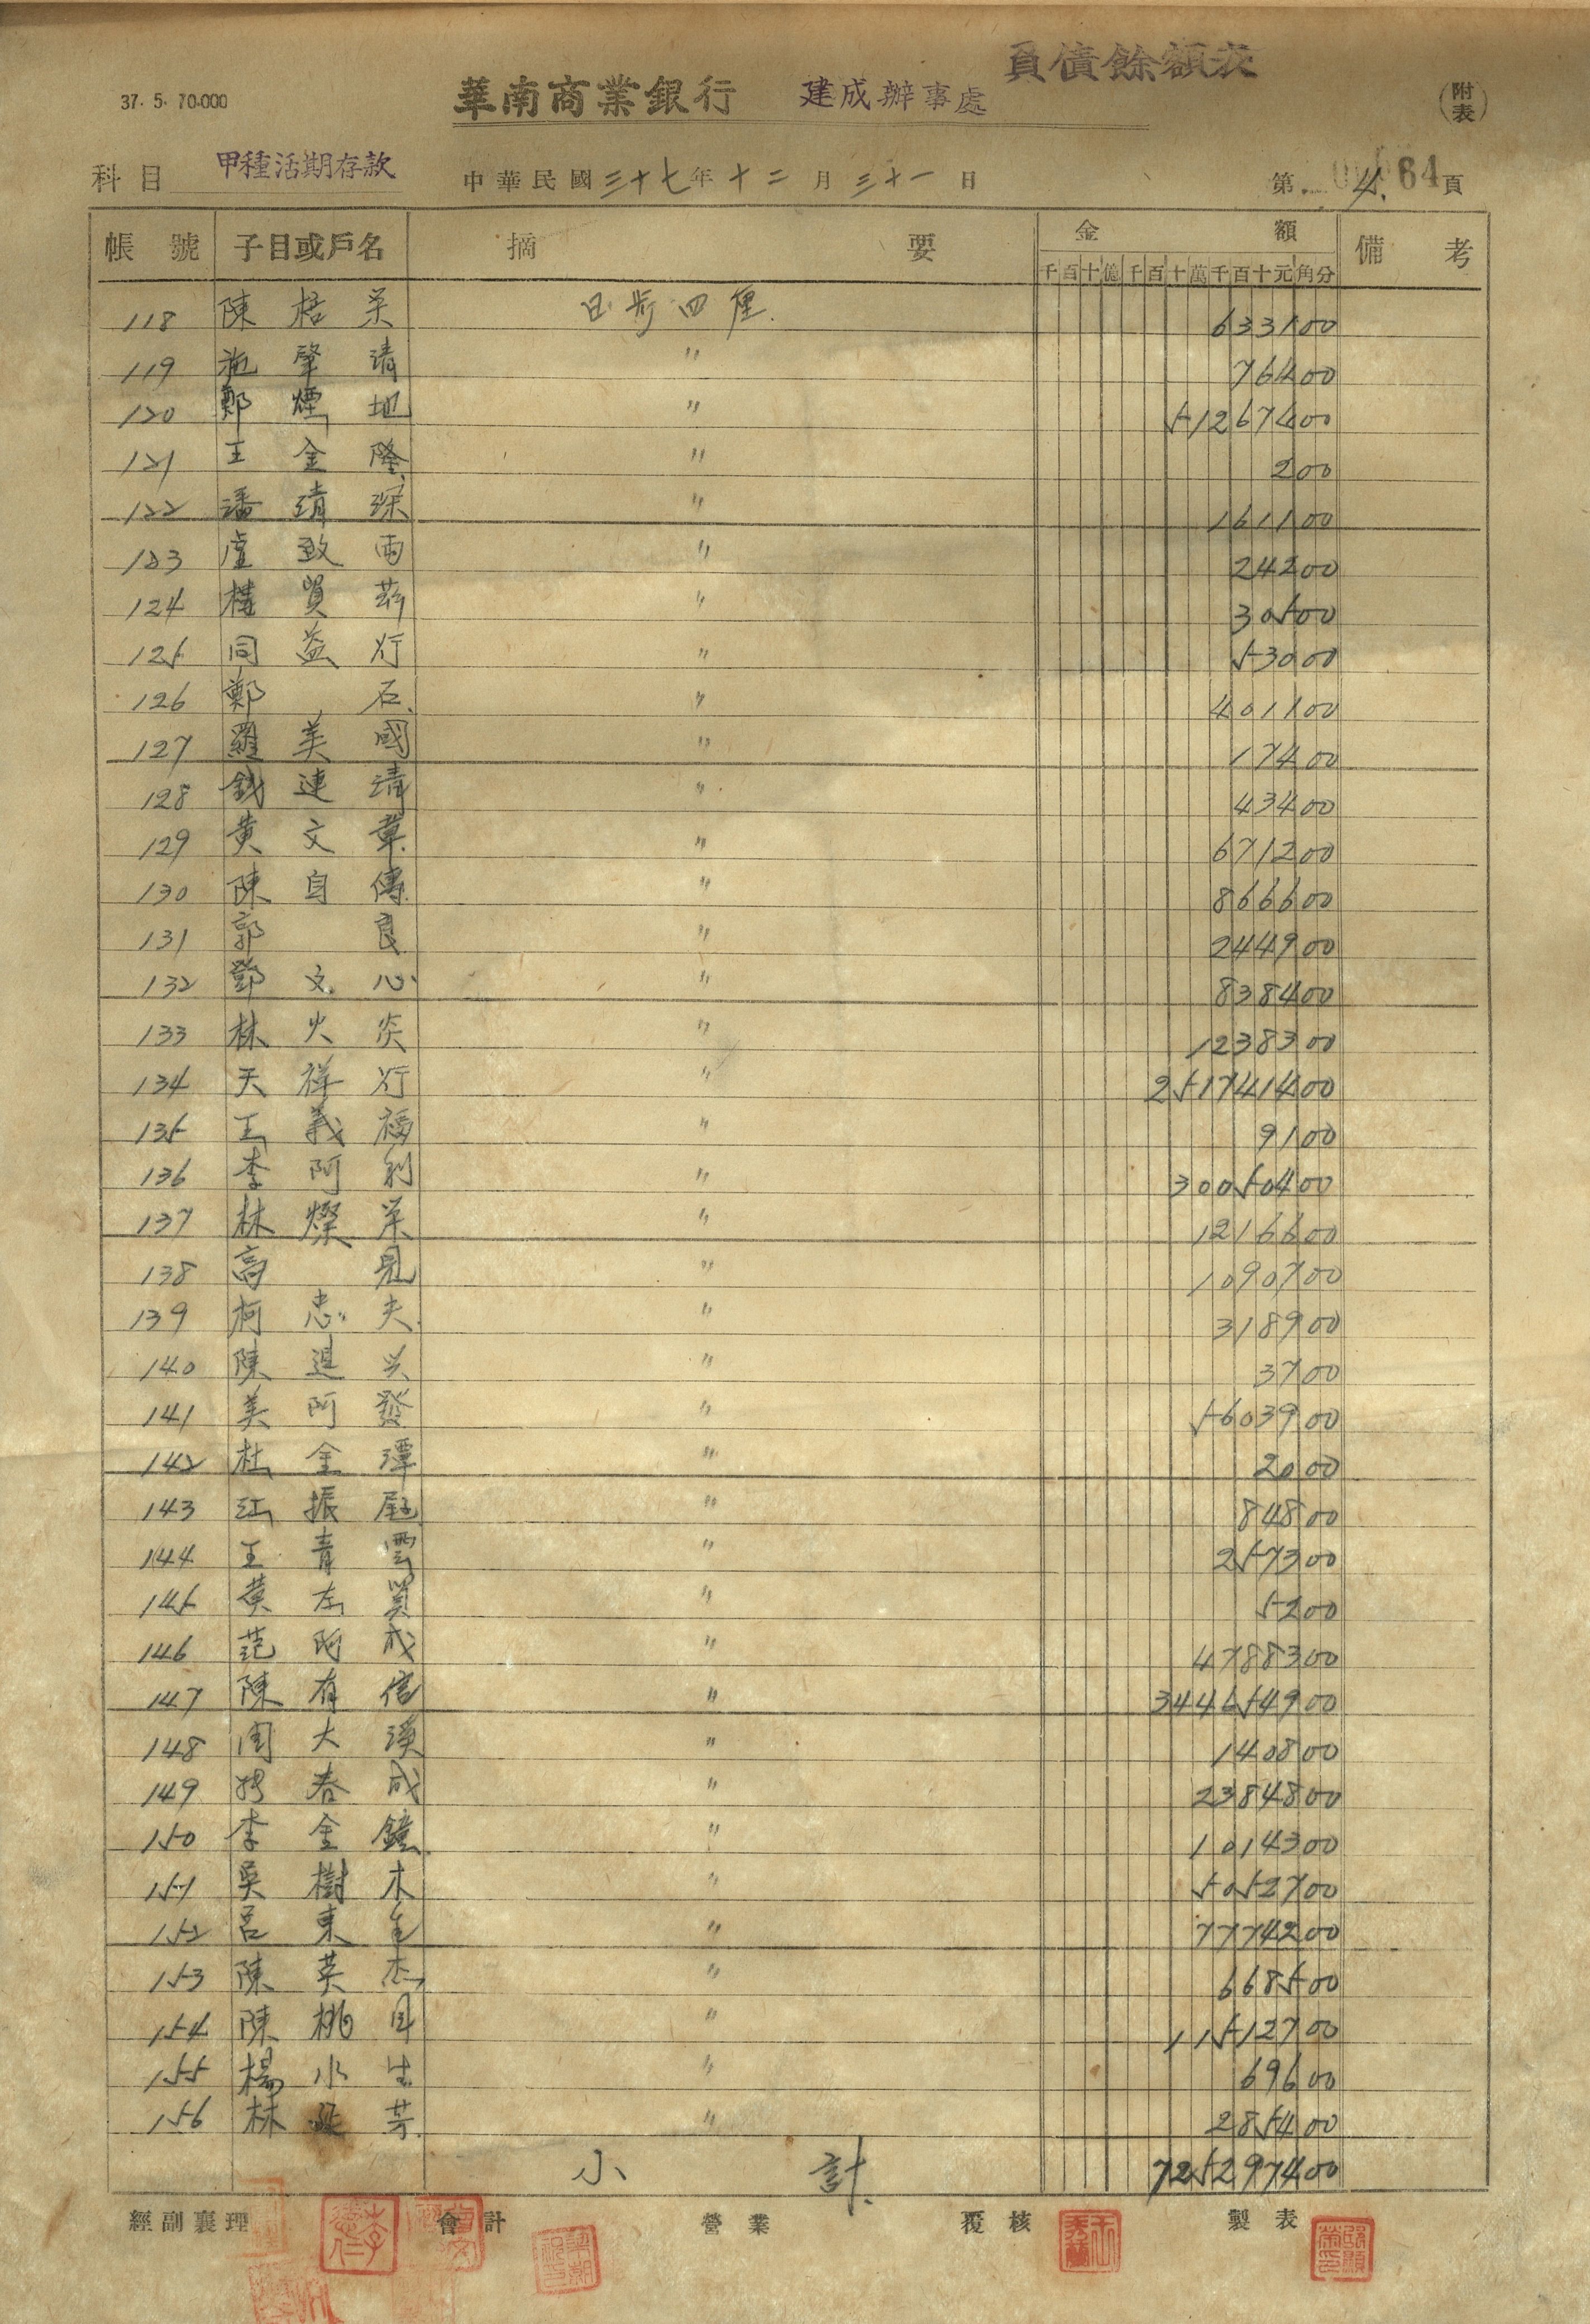 負債餘額表
37. 5. 70.000 華南商業銀行 建成辦事處 (附表)
科目 甲種活期存款 中華民國三十七年十二月三十一日 第 4. 64 頁
帳號 子目或戶名 摘要 金額 備考
千百十億千百十萬千百十元角分
118 陳 栄 日步四厘. 633100
119 施肇清 〃 76400
120 鄭煙地 〃 51267400
121 王金隆 〃 200
122 潘靖琛 〃 161100
123 盧致雨 〃 24200
124 〃 30500
125 同益行 〃 53000
126 鄭石 〃 401100
127 羅美國 〃 17400
128 錢連清 〃 43400
129 黃文章 〃 671200
130 陳自傳 〃 866600
131 郭良 〃 244900
132 鄧文心 〃 838400
133 林火炎 〃 1238300
134 天祥行 〃 251741400
135 王義福 〃 9100
136 李阿利 〃 30050400
137 林燦栄 〃 1216600
138 高見 〃 1090700
139 柯忠夫 〃 318900
140 陳進兴 〃 3700
141 美阿發 〃 5603900
142 杜金潭 〃 2000
143 江振庭 〃 84800
144 王青雲 〃 257300
145 黃左 〃 5200
146 范阿成 〃 4788300
147 陳有信 〃 344654900
148 周大漢 〃 140800
149 春成 〃 2384800
150 李金鐘 〃 1014300
151 吳樹木 〃 5052700
152 呂東全 〃 7774200
153 陳英杰 〃 668500
154 陳桃 〃 11512700
155 楊水生 〃 69600
156 林 芳 〃 285400
小計. 725297400
經副襄理 會計 營業 覆核 製表